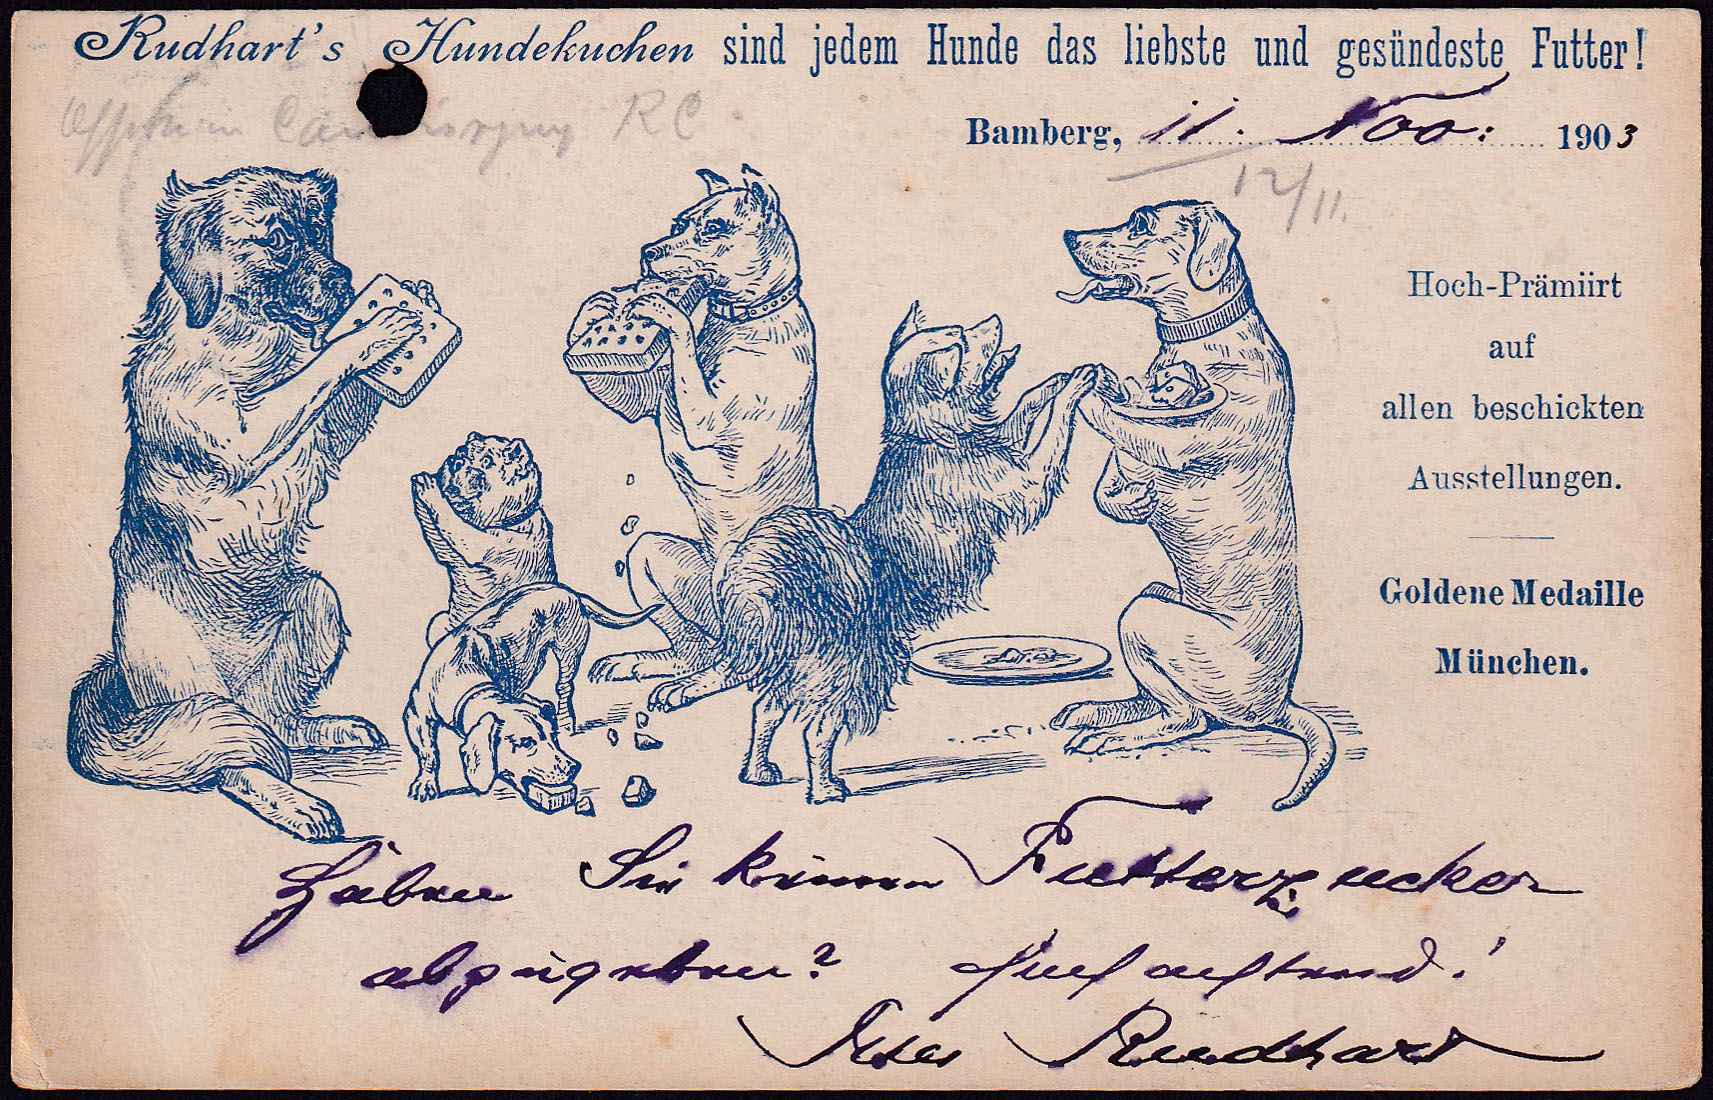 Rudhart's Hundekuchen sind jedem Hunde das liebste und gesündeste Futter!
RC
Bamberg, 11. Nov: 1903
12/11.
Hoch-Prämiirt
auf
allen beschickten
Ausstellungen.
Goldene Medaille
München.
Haben Sie keinen Futterzucker
abzugeben? Hochachtend!
Rudhart